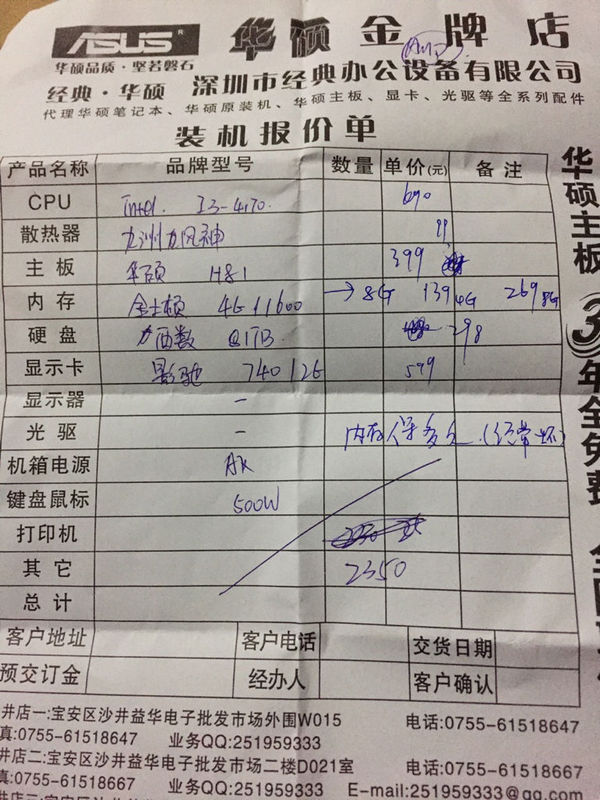 ASUS® 华硕金牌店
华硕品质·坚若磐石
经典·华硕 深圳市经典办公设备有限公司
代理华硕笔记本、华硕原装机、华硕主板、显卡、光驱等全系列配件
装机报价单
产品名称 品牌型号 数量 单价(元) 备注
CPU intel. I3-4170. 690
散热器 九洲风神 99
主板 华硕 H81 399
内存 金士顿 4G 1600 →8G 139 4G 269 8G
硬盘 西数 1TB 298
显示卡 影驰 740 599
显示器 -
光驱 - 内存保多久(经常坏)
机箱电源
键盘鼠标 500W
打印机
其它 2350
总计
客户地址 客户电话 交货日期
预交订金 经办人 客户确认
井店一:宝安区沙井益华电子批发市场外围W015 电话:0755-61518647
真:0755-61518647 业务QQ:251959333
井店二:宝安区沙井益华电子批发市场二楼D021室 电话:0755-61518667
真:0755-61518667 业务QQ:251959333 E-mail:251959333@qq.com
华硕主板3年全免费